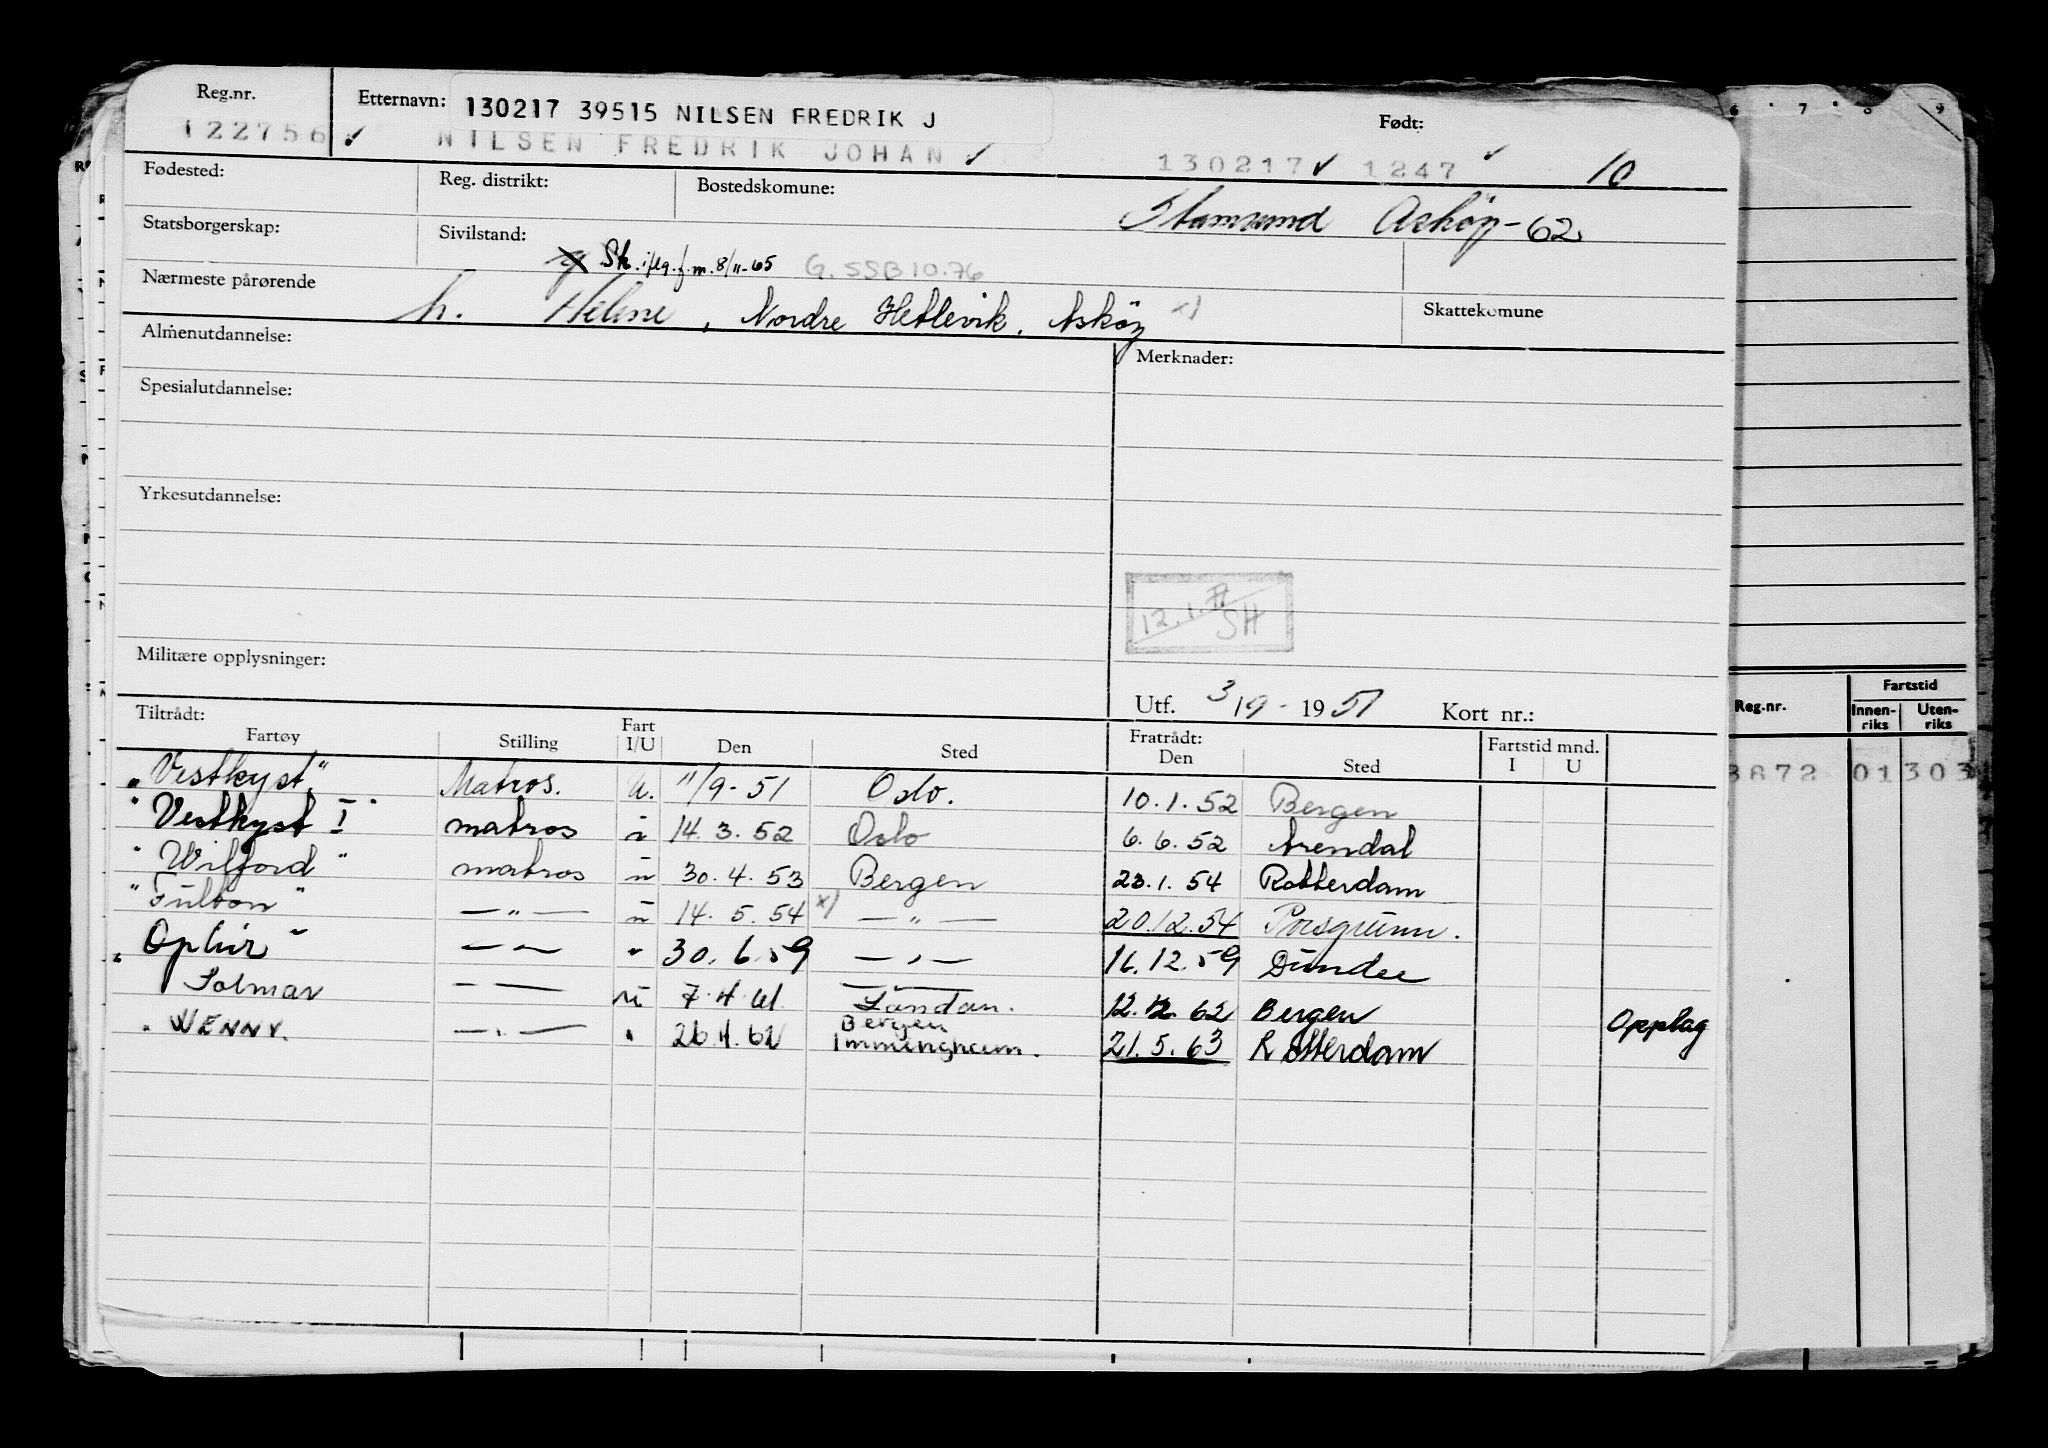 Reg.nr. Etternavn: 130217 39515 NILSEN FREDRIK J Født:
122756 ✓ NILSEN FREDRIK JOHAN ✓ 130217 ✓ 1247 ✓ 10
Fødested: Reg. distrikt: Bostedskomune: Stamsund Asköy-62
Statsborgerskap: Sivilstand: Sk. i flg. f.m. 8/11-65 G. SSB 10.76
Nærmeste pårørende h. Helene, Nordre Hetlevik, Asköy x) Skattekomune
Almenutdannelse: Merknader:
Spesialutdannelse:
Yrkesutdannelse:
12.1.77 SH
Militære opplysninger:
Utf. 3/9 - 1951 Kort nr.:
Tiltrådt: Fratrådt: Fartstid mnd.
Fartøy Stilling Fart I/U Den Sted Den Sted I U
"Vestkyst" Matros. u. 11/9-51 Oslo. 10.1.52 Bergen
"Vestkyst I" matros 14.3.52 Oslo 6.6.52 Arendal
"Wilford" matros u 30.4.53 Bergen 23.1.54 Rotterdam
"Fulton" — " — u 14.5.54 x) — " — 20.12.54 Porsgrunn.
"Ophir" — " — " 30.6.59 — " — 16.12.59 Dundee
Solmar — " — u 7.4.61 London. 12.2.62 Bergen Opplag
" WENNY. — " — " 26.4.62 Bergen Immingham. 21.5.63 Rotterdam
6 7 8 9
Fartstid
Reg.nr. Innen-riks Uten-riks
3872 01 303